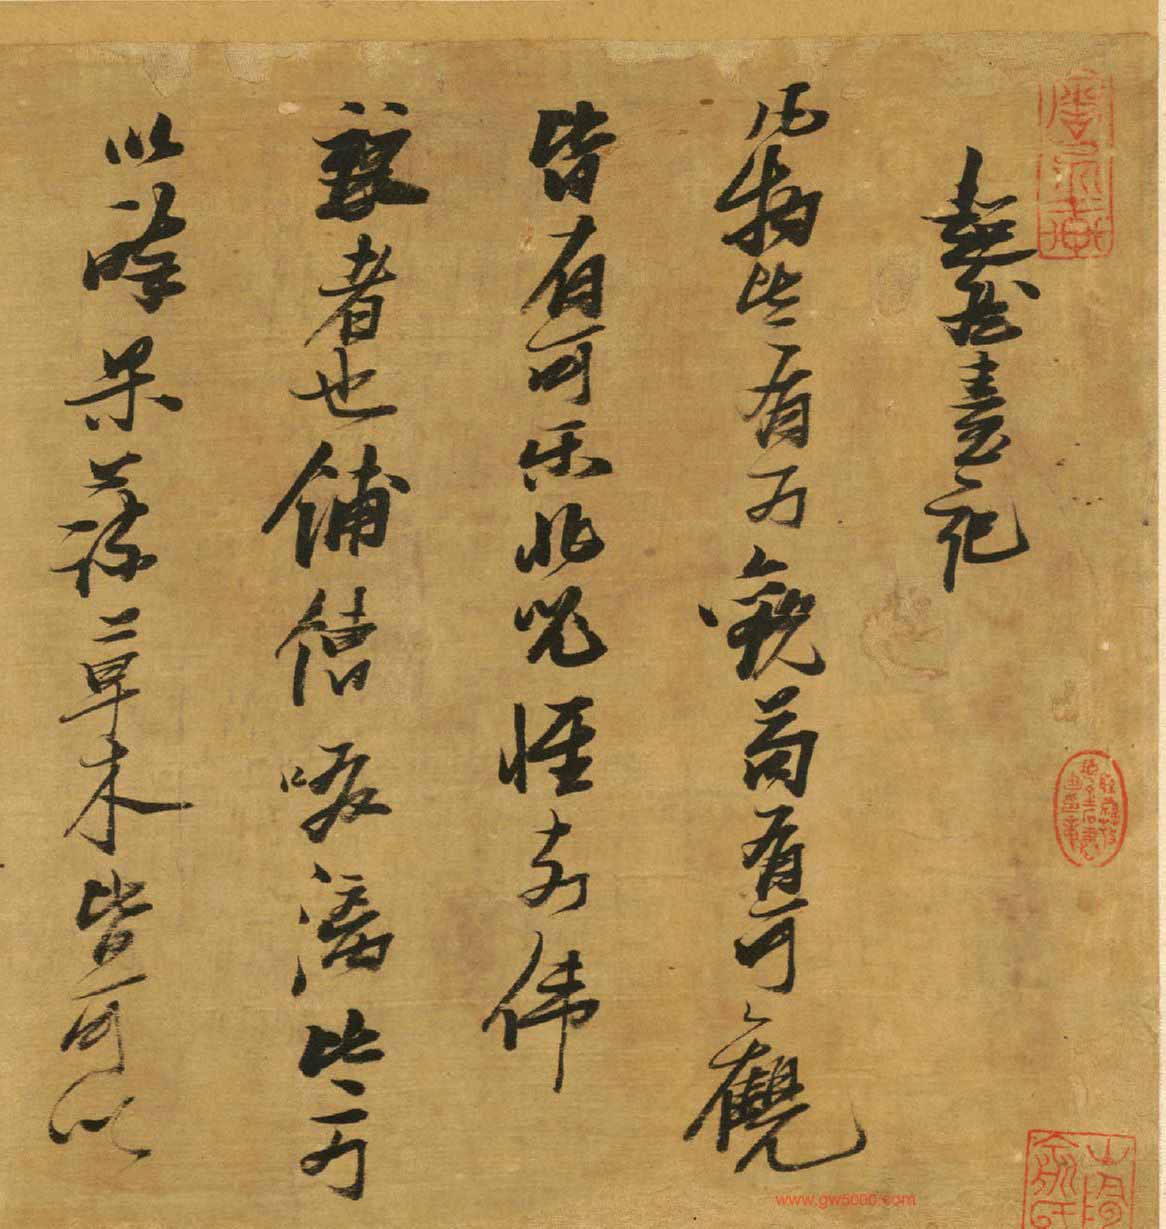 超然臺記
凡物皆有可觀苟有可觀
皆有可樂非必怪奇偉
麗者也餔糟啜漓皆可
以醉果蔬草木皆可以
www.gw5000.com